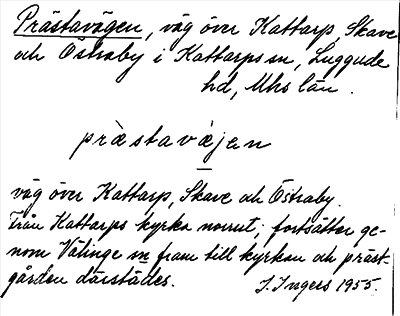 Prästavägen, väg över Kattarp, Skave
och Östraby i Kattarps sn, Luggude
hd, Mhs län.
prästaväjen
väg över Kattarp, Skave och Östraby.
Från Kattarps kyrka norrut; fortsätter ge-
nom Välinge sn fram till kyrkan och präst-
gården därstädes. I. Ingers 1955.